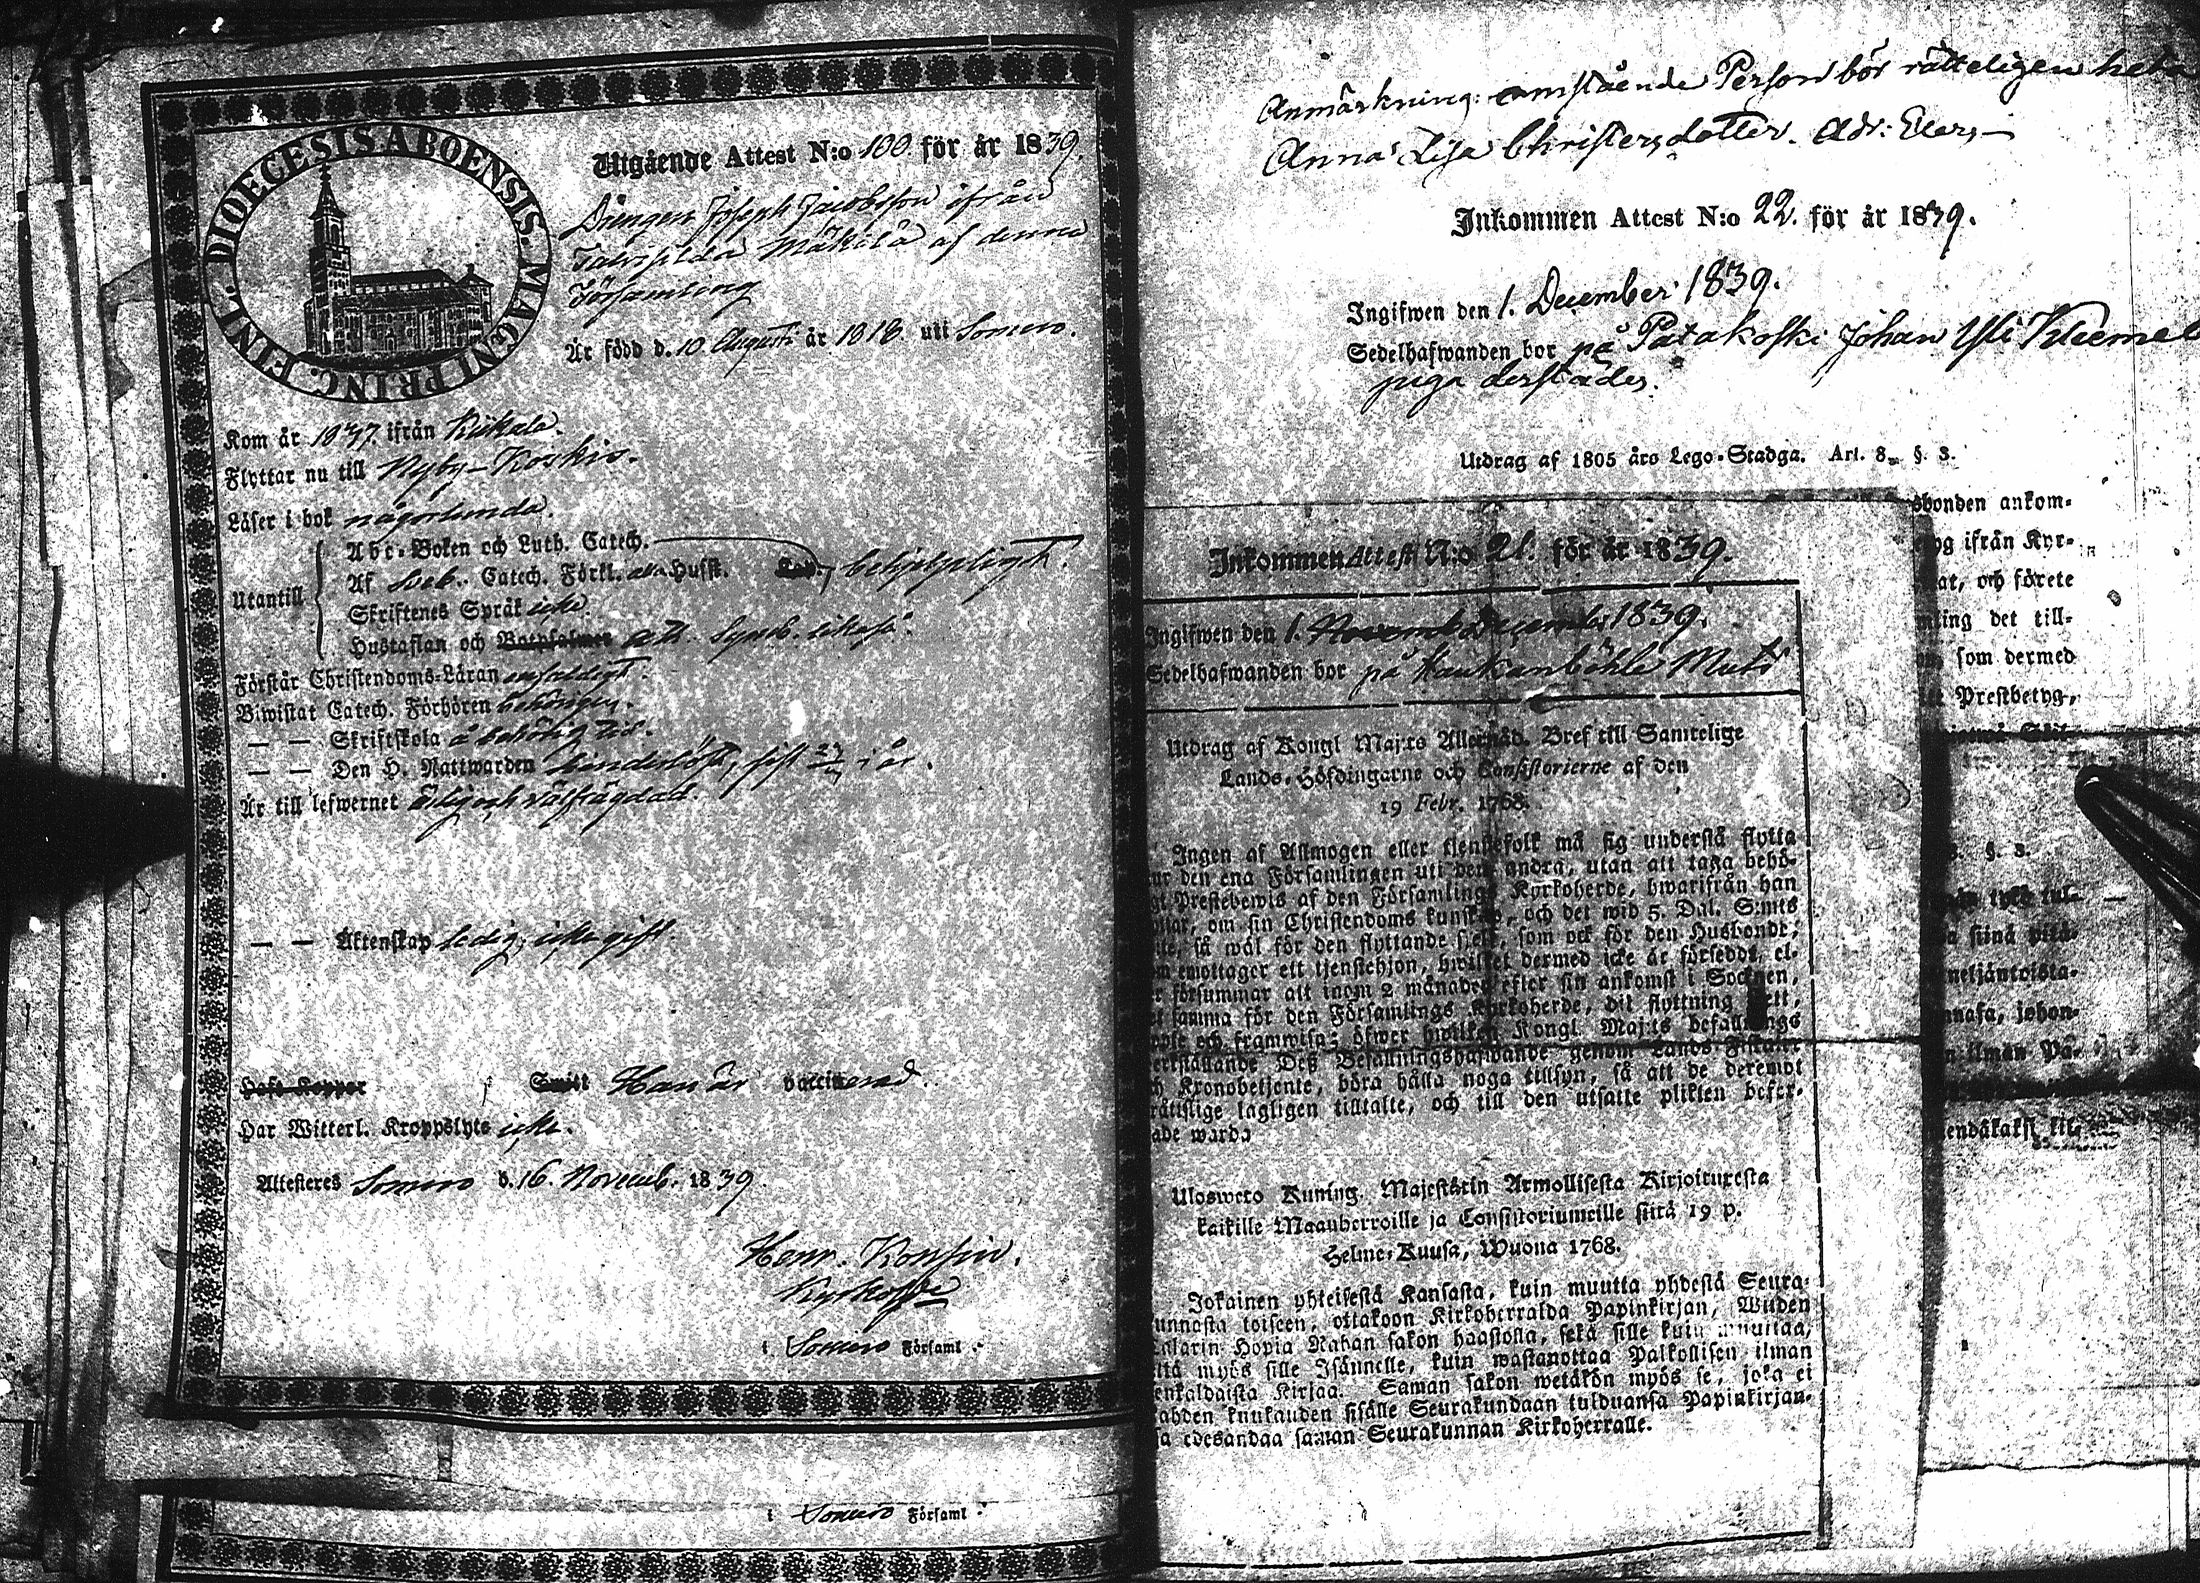 DIOECESIS ABOENSIS. MAGNI PRINC. FINL.
Utgående Attest N:o 100 för år 1839.
Drengen Joseph Jacobsson ifrån
Talvisilda Mäkilä af denna
Församling
Är född d. 10 Augusti år 1818. uti Somero.
Kom år 1837. ifrån Kiikala.
Flyttar nu till Nyby-Koskis.
Läser i bok någorlunda.
Utantill
Abc-Boken och Luth. Catech.
Af Sveb. Catech. Förkl. Hufst. behjelpligt.
Skriftenes Språk icke.
Hustaflan och Botpsalmer Symb. likaså.
Förstår Christendoms-Läran enfaldigt.
Biwistat Catech. Förhören behörigen.
— — Skriftskola å behörig tid.
— — Den H. Nattwarden hinderlöst, sist i år.
Är till lefwernet ärlig och välfrägdad.
— — Äktenskap ledig, icke gift.
Haft Koppor Smitt Han är vaccinerad.
Har Witterl. Kroppslyte icke.
Attesteres Somero d. 16. Novemb. 1839.
Henr. Konsin.
Kyrkoh:de
i Somero Församl.
i Somero Församl.
Anmärkning: omstående Person bör rätteligen heta
Anna Lisa Christersdotter. Adv: Elers
Inkommen Attest N:o 22. för år 1839.
Ingifwen den 1. December 1839.
Sedelhafwanden bor på Patakoski Johan Yli Kleemel
piga derstädes.
Utdrag af 1805 års Lego-Stadga. Art. 8. §. 3.
sbonden ankom-
yg ifrån Kyr-
at, och förete
ning det till-
som dermed
Prestbetyg,
§. 3.
neljäntoista-
nnasa, johon-
n ilman Pa-
endäkaksi kil-
Inkommen Attest N:o 21. för år 1839.
Ingifwen den 1. Novemb December 1839.
Sedelhafwanden bor på Haukanböhle Muts
Utdrag af Kongl Maj:ts Allernåd. Bref till Samtelige
Lands-Höfdingarne och Consistorierne af den
19 Febr. 1768.
Ingen af Allmogen eller tjenstefolk må sig understå flytta
ur den ena Församlingen uti den andra, utan att taga behö-
gt Prestebewis af den Församlings Kyrkoherde, hwarifrån han
ttar, om sin Christendoms kunskap, och det wid 5. Dal. S:mts
ite, så wäl för den flyttande sjelf, som ock för den Husbonde,
m emottager ett tjenstehjon, hwilket dermed icke är försedde, el-
r försummar att inom 2 månader efter sin ankomst i Socknen,
t samma för den Församlings Kyrkoherde, dit flyttning skett,
pte och framwisa; öfwer hwilken Kongl. Maj:ts befallnings
erkställande Deß Befallningshafwande genom Lands Fiskaler
h Kronobetjente, böra hålla noga tillsyn, så att de deremot
råttslige lagligen tilltalte, och till den utsatte plikten befor-
ade warda
Uloswero Kuning. Majestetin Armollisesta Kirjoituxesta
kaikille Maauherroille ja Consistoriumeille siitä 19 p.
Helme-Kuusa, Wuona 1768.
Jokainen yhteisestä Kansasta, kuin muutta yhdestä Seura-
unnasta toiseen, ottakoon Kirkoherralda Papinkirjan, Wiiden
alarin Hopia Rahan sakon haastolla, sekä sille kuin muuttaa,
ttä myös sille Isännelle, kuin wastanottaa Palkollisen ilman
enkaldaista Kirjaa. Saman sakon wetäkön myös se, joka ei
ahden kuukauden sisälle Seurakundaan tulduansa Papinkirjan-
sa edesandaa saman Seurakunnan Kirkoherralle.